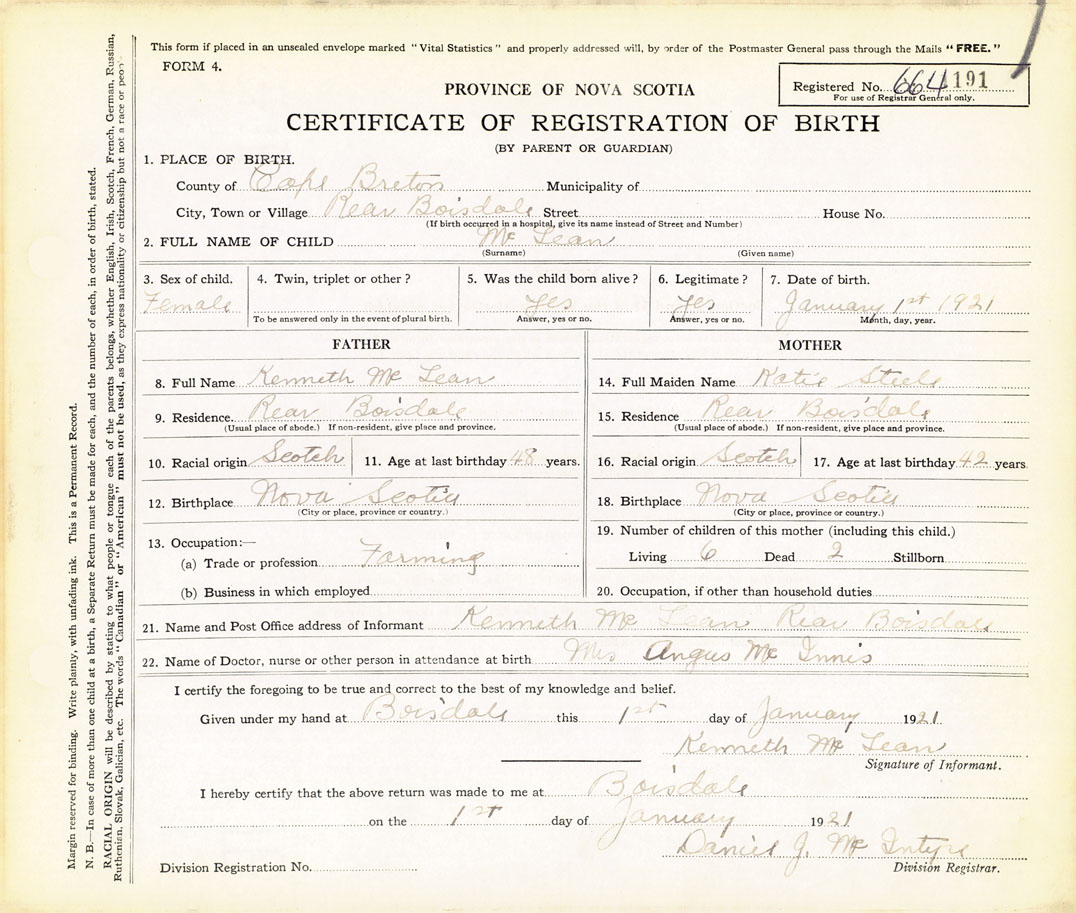 This form if placed in an unsealed envelope marked "Vital Statistics" and properly addressed will, by order of the Postmaster General pass through the Mails "FREE."
FORM 4.
Registered No. 664 191
For use of Registrar General only.
PROVINCE OF NOVA SCOTIA
CERTIFICATE OF REGISTRATION OF BIRTH
(BY PARENT OR GUARDIAN)
1. PLACE OF BIRTH.
County of Cape Breton Municipality of
City, Town or Village Rear Boisdale Street House No.
(If birth occurred in a hospital, give its name instead of Street and Number)
2. FULL NAME OF CHILD Mc Lean
(Surname) (Given name)
3. Sex of child. 4. Twin, triplet or other? 5. Was the child born alive? 6. Legitimate? 7. Date of birth.
Female Yes Yes January 1st 1921
To be answered only in the event of plural birth. Answer, yes or no. Answer, yes or no. Month, day, year.
FATHER MOTHER
8. Full Name Kenneth Mc Lean 14. Full Maiden Name Katie Steele
9. Residence. Rear Boisdale 15. Residence Rear Boisdale
(Usual place of abode.) If non-resident, give place and province. (Usual place of abode.) If non-resident, give place and province.
10. Racial origin Scotch 11. Age at last birthday 48 years. 16. Racial origin Scotch 17. Age at last birthday 42 years.
12. Birthplace Nova Scotia 18. Birthplace Nova Scotia
(City or place, province or country.) (City or place, province or country.)
13. Occupation:— 19. Number of children of this mother (including this child.)
(a) Trade or profession Farming Living 6 Dead 2 Stillborn
(b) Business in which employed 20. Occupation, if other than household duties
21. Name and Post Office address of Informant Kenneth Mc Lean Rear Boisdale
22. Name of Doctor, nurse or other person in attendance at birth Mrs Angus Mc Innis
I certify the foregoing to be true and correct to the best of my knowledge and belief.
Given under my hand at Boisdale this 1st day of January 1921.
Kenneth Mc Lean
Signature of Informant.
I hereby certify that the above return was made to me at Boisdale
on the 1st day of January 1921
Daniel J. Mc Intyre
Division Registration No. Division Registrar.
Margin reserved for binding. Write plainly, with unfading ink. This is a Permanent Record.
N. B.—In case of more than one child at a birth, a Separate Return must be made for each, and the number of each, in order of birth, stated.
RACIAL ORIGIN will be described by stating to what people or tongue each of the parents belongs, whether English, Irish, Scotch, French, German, Russian,
Ruthenian, Slovak, Galician, etc. The words "Canadian" or "American" must not be used, as they express nationality or citizenship but not a race or peop